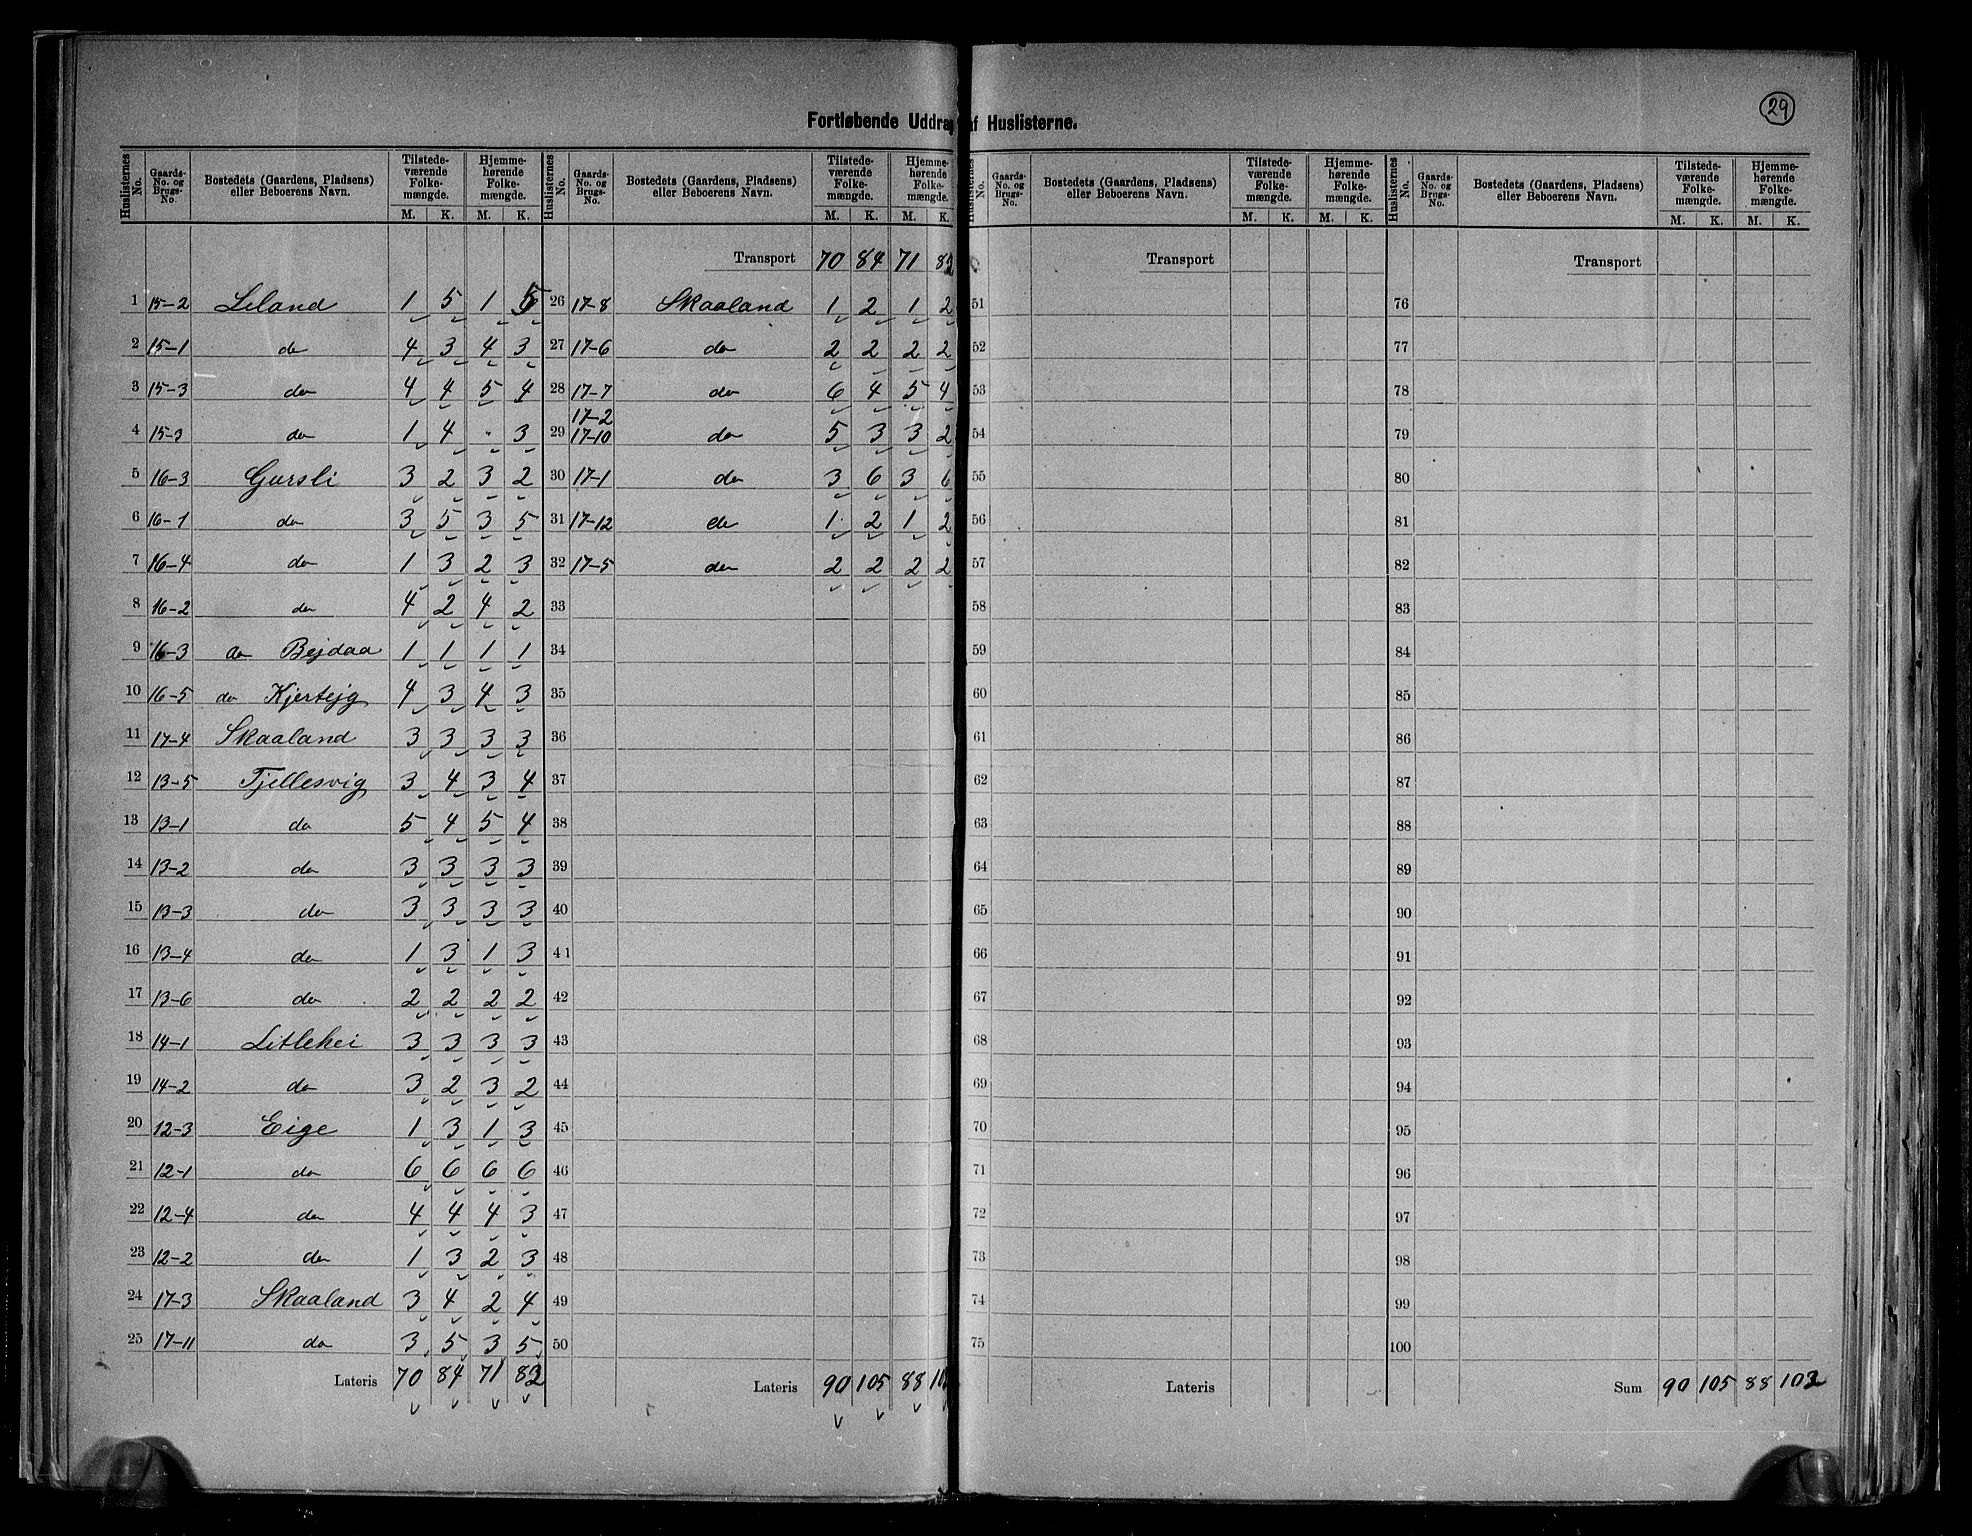 29
Fortløbende Uddrag af Huslisterne.
Huslisternes No. Gaards-No. og Brugs-No. Bostedets (Gaardens, Pladsen) eller Beboerens Navn. Tilstede-værende Folke-mængde. M. K. Hjemme-hørende Folke-mængde. M. K.
Huslisternes No. Gaards-No. og Brugs-No. Bostedets (Gaardens, Pladsens) eller Beboerens Navn. Tilstede-værende Folke-mængde. M. K. Hjemme-hørende Folke-mængde. M. K.
Huslisternes No. Gaards-No. og Brugs-No. Bostedets (Gaardens, Pladsen) eller Beboerens Navn. Tilstede-værende Folke-mængde. M. K. Hjemme-hørende Folke-mængde. M. K.
Huslisternes No. Gaards-No. og Brugs-No. Bostedets (Gaardens, Pladsens) eller Beboerens Navn. Tilstede-værende Folke-mængde. M. K. Hjemme-hørende Folke-mængde. M. K.
Transport 70 84 71 82 Transport Transport
1 15-2 Leland 1 5 1 5 26 17-8 Skaaland 1 2 1 2 51 76
2 15-1 do 4 3 4 3 27 17-6 do 2 2 2 2 52 77
3 15-3 do 4 4 5 4 28 17-7 do 6 4 5 4 53 78
17-2
4 15-3 do 1 4 - 3 29 17-10 do 5 3 3 2 54 79
5 16-3 Gursli 3 2 3 2 30 17-1 do 3 6 3 6 55 80
6 16-1 do 3 5 3 5 31 17-12 do 1 2 1 2 56 81
7 16-4 do 1 3 2 3 32 17-5 do 2 2 2 2 57 82
8 16-2 do 4 2 4 2 33 58 83
9 16-3 do Bejdaa 1 1 1 1 34 59 84
10 16-5 do Kjertejg 4 3 4 3 35 60 85
11 17-4 Skaaland 3 3 3 3 36 61 86
12 13-5 Tjellesvig 3 4 3 4 37 62 87
13 13-1 do 5 4 5 4 38 63 88
14 13-2 do 3 3 3 3 39 64 89
15 13-3 do 3 3 3 3 40 65 90
16 13-4 do 1 3 1 3 41 66 91
17 13-6 do 2 2 2 2 42 67 92
18 14-1 Litlehei 3 3 3 3 43 68 93
19 14-2 do 3 2 3 2 44 69 94
20 12-3 Eige 1 3 1 3 45 70 95
21 12-1 do 6 6 6 6 46 71 96
22 12-4 do 4 4 4 3 47 72 97
23 12-2 do 1 3 2 3 48 73 98
24 17-3 Skaaland 3 4 2 4 49 74 99
25 17-11 do 3 5 3 5 50 75 100
Lateris 70 84 71 82 Lateris 90 105 88 102 Lateris Sum 90 105 88 102